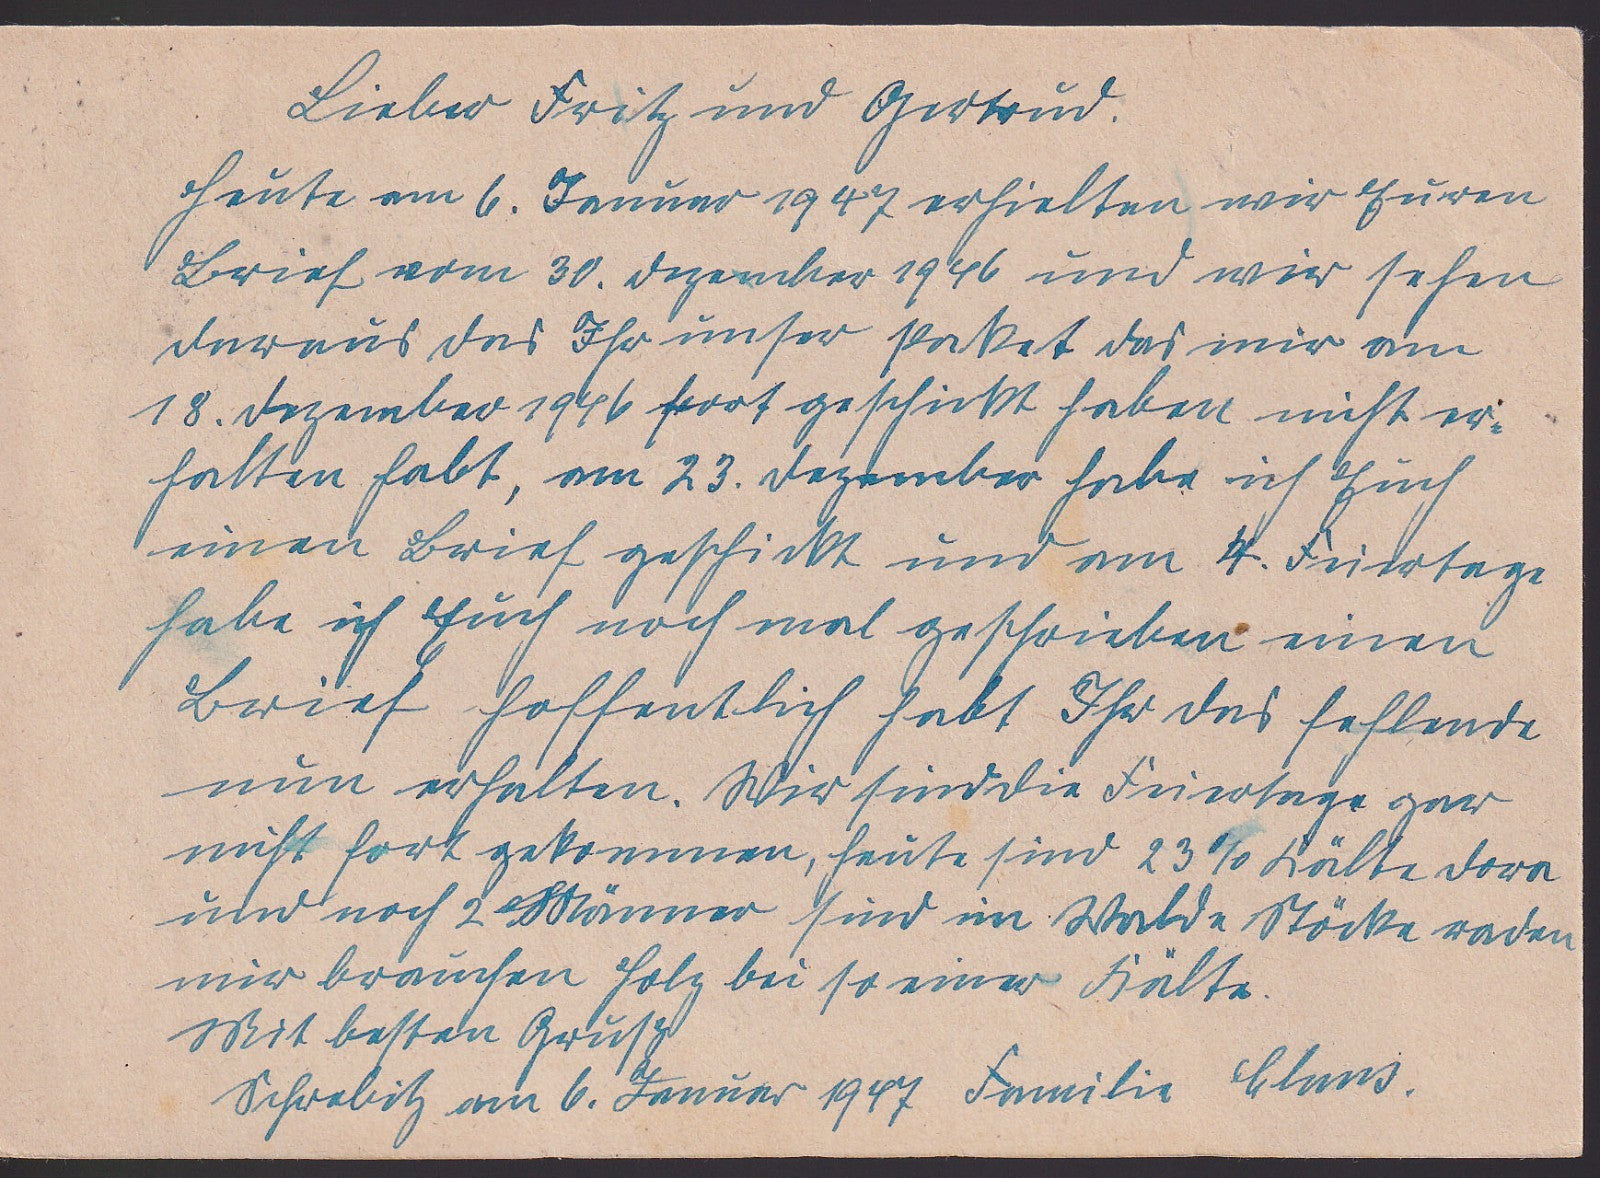 Lieber Fritz und Gertrud.
Heute am 6. Januar 1947 erhielten wir Euren
Brief vom 30. Dezember 1946 und wir sehen
daraus das Ihr unser Paket das mir am
18. Dezember 1946 fort geschickt haben nicht er=
halten habt, am 23. Dezember habe ich Euch
einen Brief geschickt und am 4. Feiertage
habe ich Euch noch mal geschrieben einen
Brief hoffentlich habt Ihr das fehlende
nun erhalten. Wir sind die Feiertage gar
nicht fort gekommen, heute sind 23% Kälte Dora
und noch 2 Männer sind im Walde Stöcke raden
mir brauchen Holz bei so einer Kälte.
Mit besten Grusz
Schrebitz am 6. Januar 1947 Familie Claus.